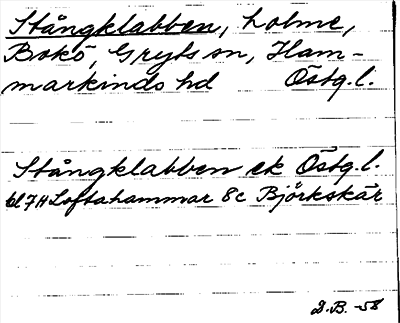 Stångklabben, holme,
Bokö, Gryts sn, Ham-
markinds hd Östg.l.
Stångklabben ek Östg.l.
bl 7H Loftahammar 8c Björkskär
D.B. -58